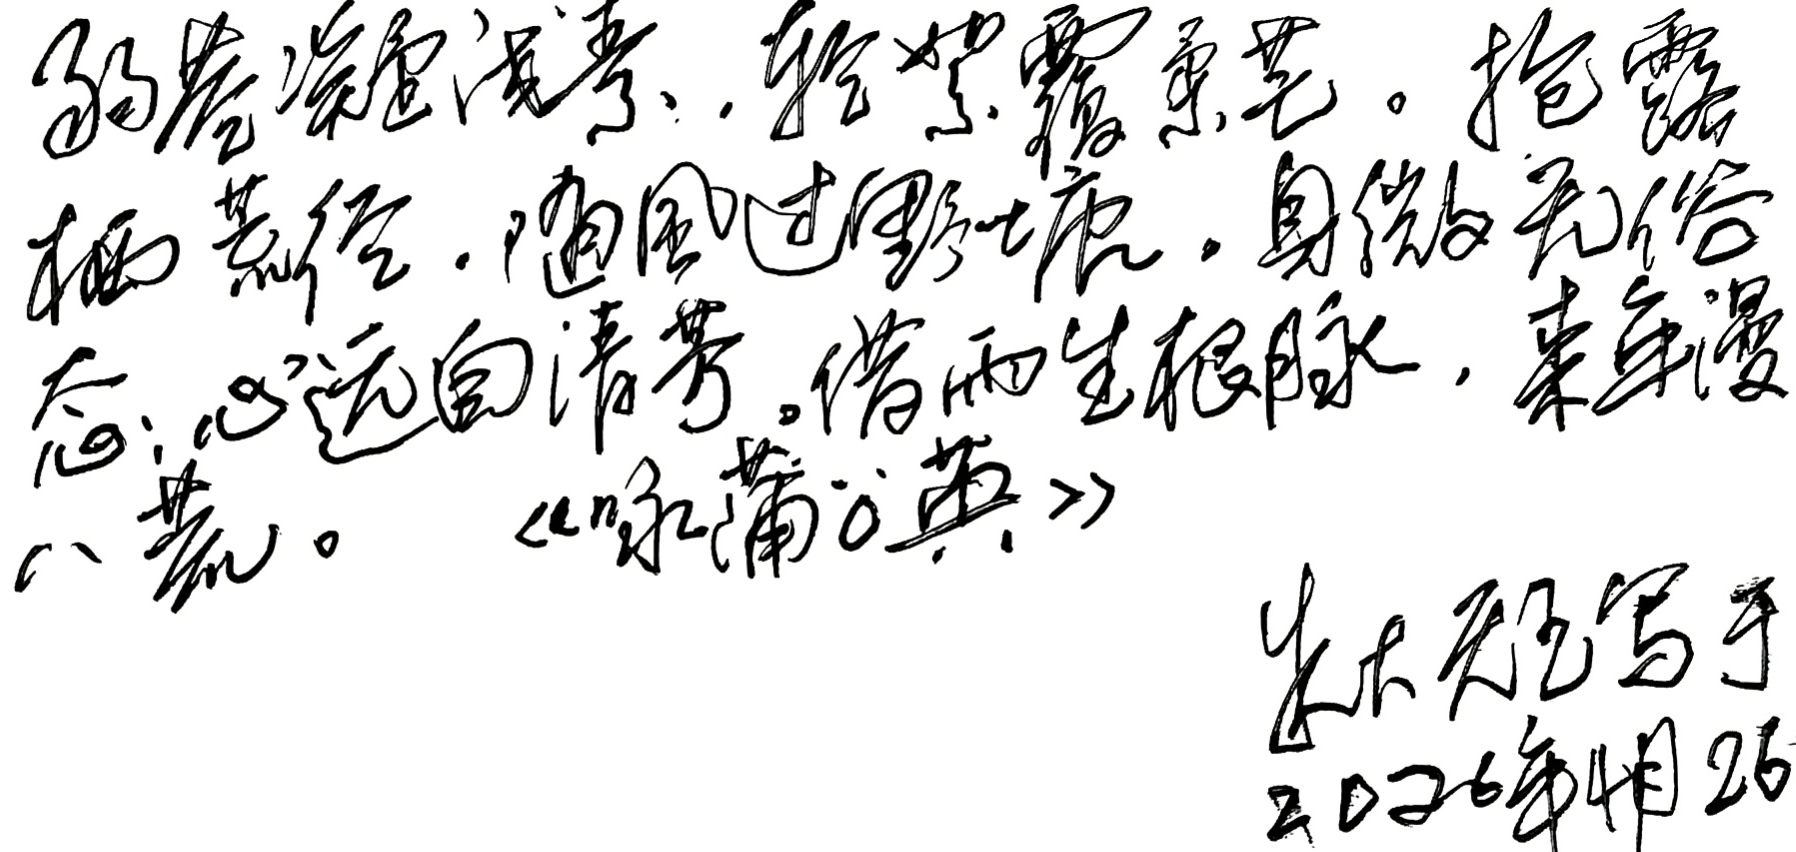 弱蕊凝浅素，轻絮覆柔芒。抱露
栖荒径，随风过野塘。身微无俗
态，心远自清芳。借雨生根脉，来年漫
八荒。《咏蒲公英》
写于
2026年4月26